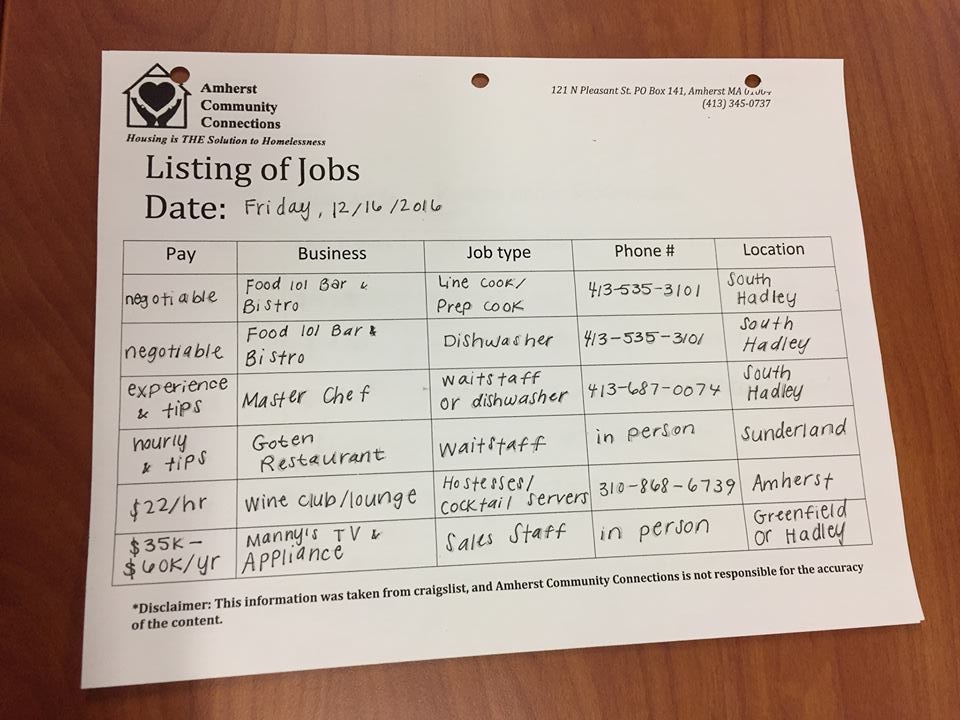 Amherst
Community
Connections
Housing is THE Solution to Homelessness
121 N Pleasant St. PO Box 141, Amherst MA
(413) 345-0737
Listing of Jobs
Date: Friday, 12/16/2016
Pay Business Job type Phone # Location
negotiable Food 101 Bar & Bistro Line cook/ Prep cook 413-535-3101 South Hadley
negotiable Food 101 Bar & Bistro Dishwasher 413-535-3101 South Hadley
experience & tips Master Chef waitstaff or dishwasher 413-687-0074 South Hadley
hourly & tips Goten Restaurant waitstaff in person Sunderland
$22/hr wine club/lounge Hostesses/ cocktail servers 310-868-6739 Amherst
$35K- $60K/yr Manny's TV & Appliance Sales Staff in person Greenfield or Hadley
*Disclaimer: This information was taken from craigslist, and Amherst Community Connections is not responsible for the accuracy
of the content.